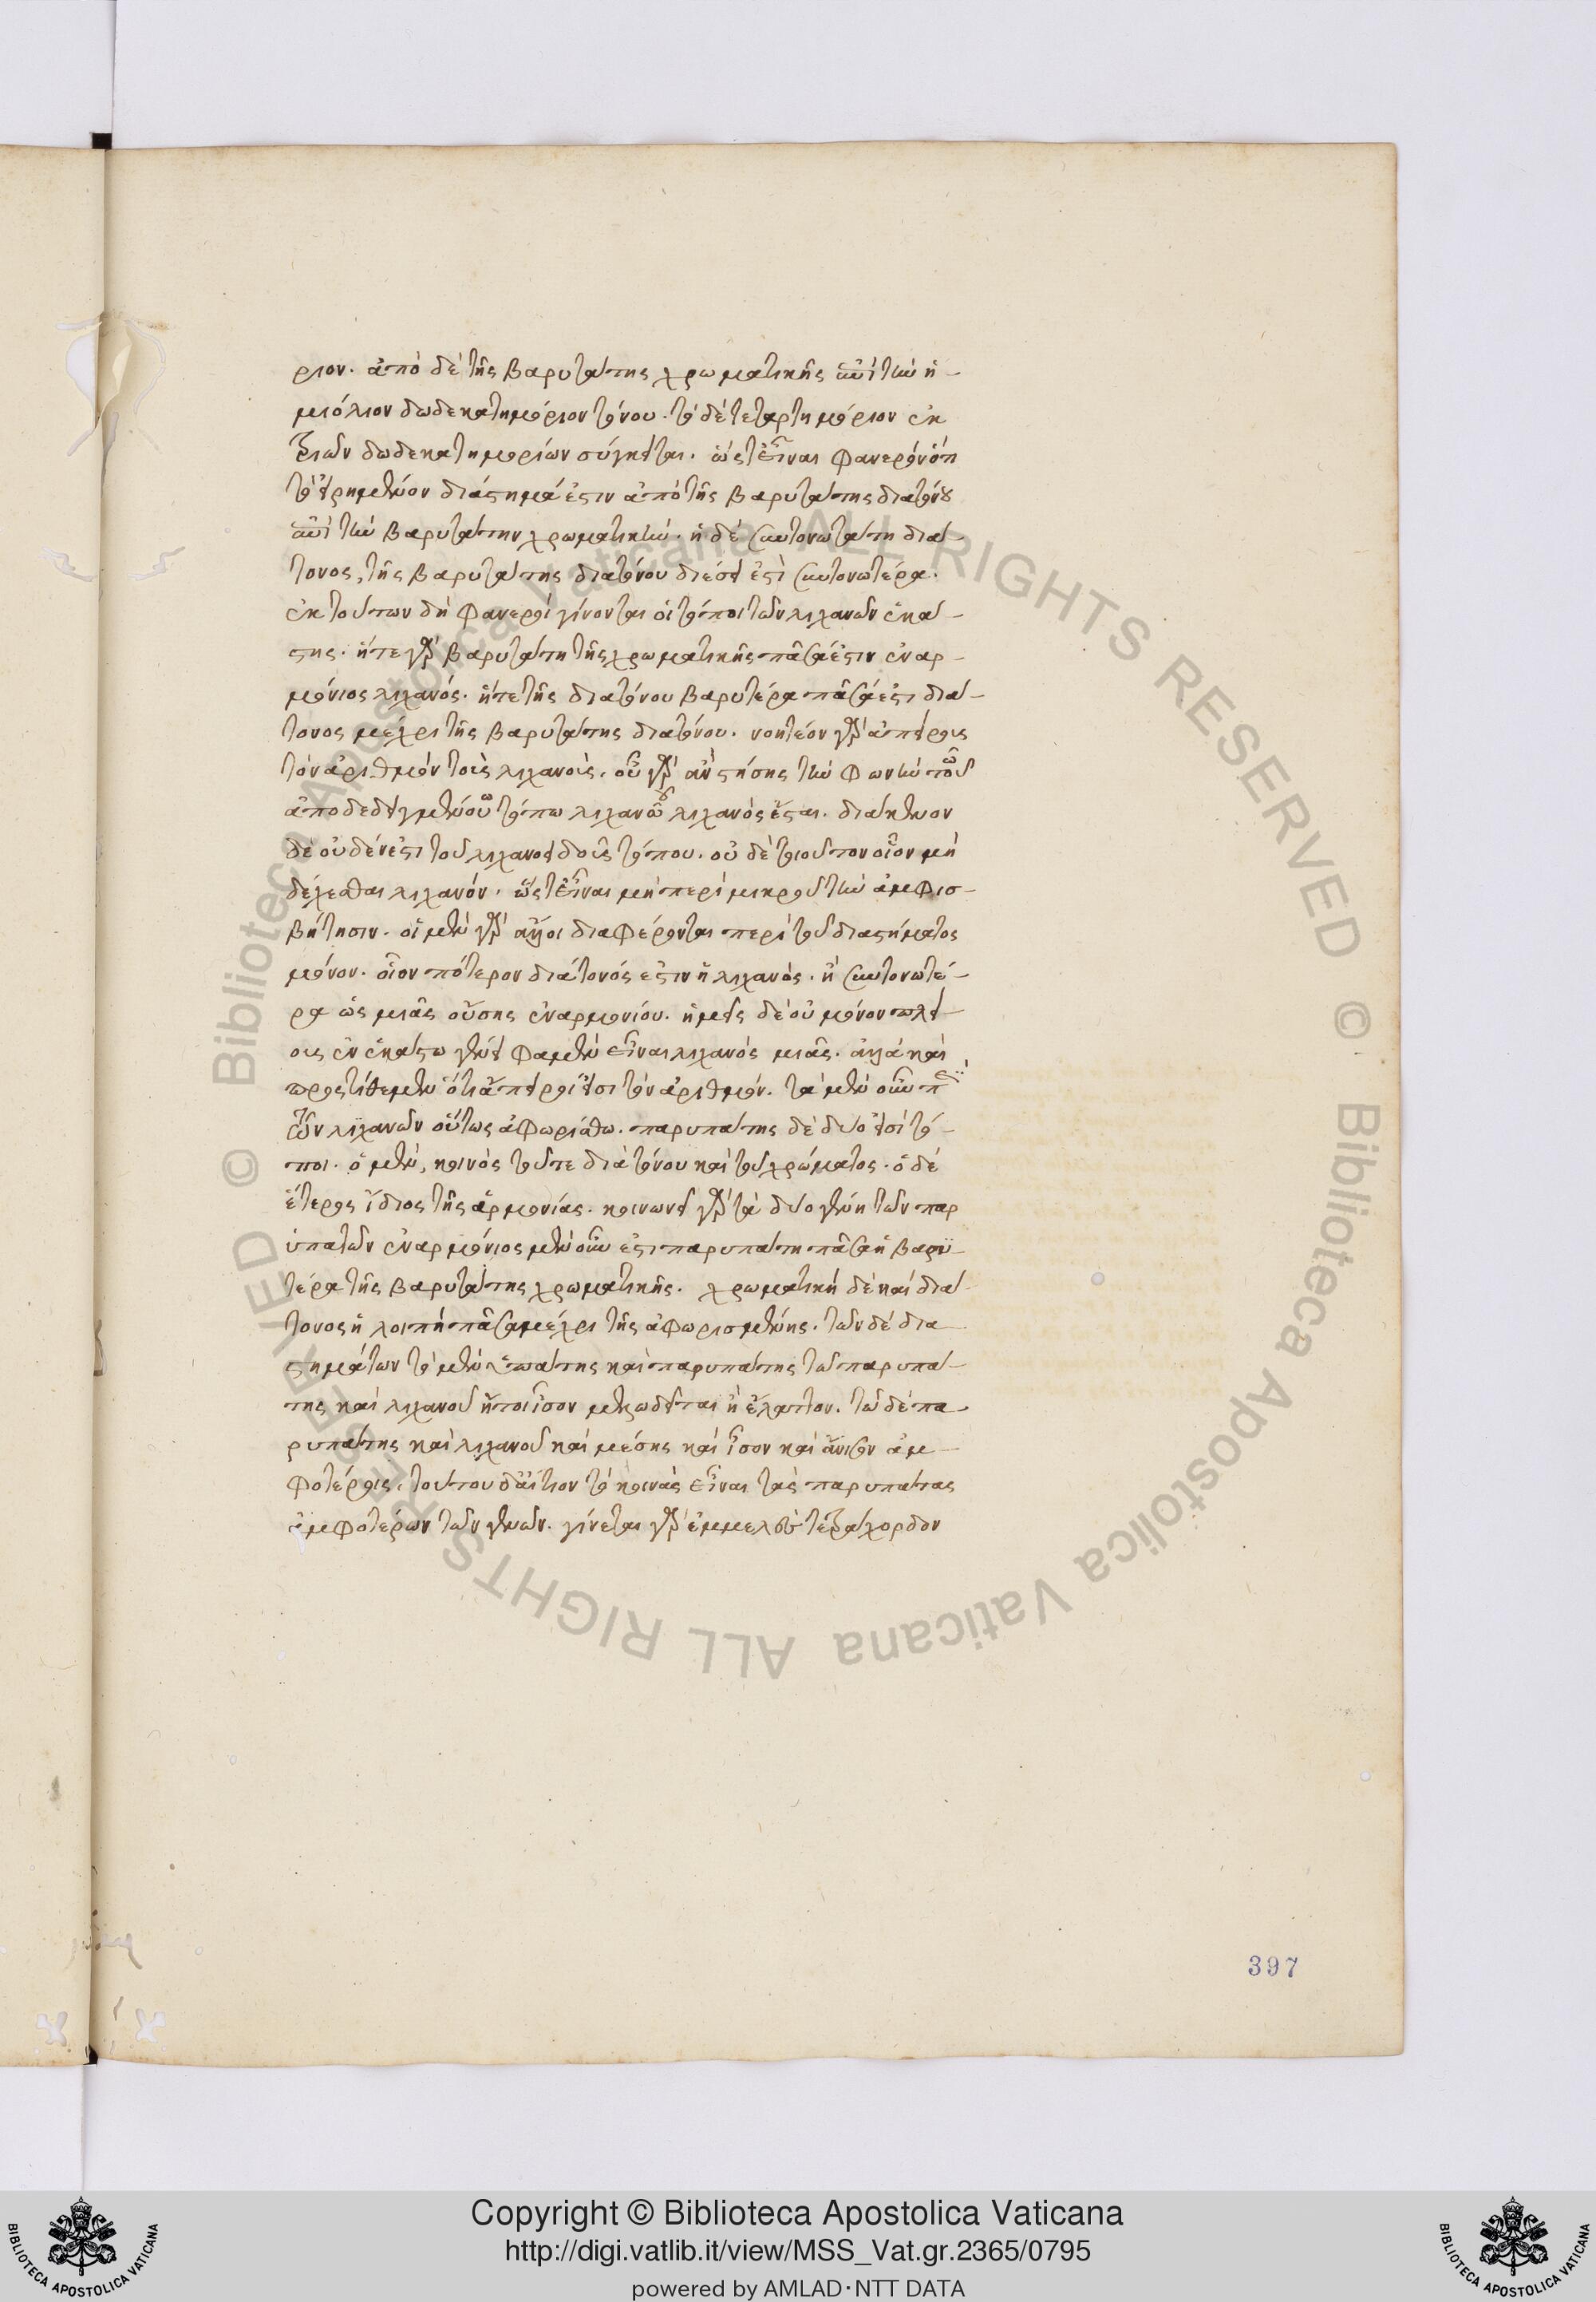 ριον. ἀπὸ δὲ τῆς βαρυτάτης χρωματικῆς ἐπὶ τὴν ἡ-
μιόλιον δωδεκατημόριον τόνου. τὸ δὲ τεταρτημόριον ἐκ
τριῶν δωδεκατημορίων σύγκειται. ὥστ' εἶναι φανερὸν ὅτι
τὸ εἰρημένον διάστημά ἐστιν ἀπὸ τῆς βαρυτάτης διατόνου
ἐπὶ τὴν βαρυτάτην χρωματικήν. ἡ δὲ συντονωτάτη διά-
τονος, τῆς βαρυτάτης διατόνου διέσει ἐστὶ συντονωτέρα.
ἐκ τούτων δὴ φανεροὶ γίνονται οἱ τόποι τῶν λιχανῶν ἑκά-
στης. ἥτε γὰρ βαρυτάτη τῆς χρωματικῆς πᾶσά ἐστιν ἐναρ-
μόνιος λιχανός. ἥτε τῆς διατόνου βαρυτέρα πᾶσά ἐστι διά-
τονος μέχρι τῆς βαρυτάτης διατόνου. νοητέον γὰρ ἀπείρους
τὸν ἀριθμὸν τοὺς λιχανούς. οὗ γὰρ ἂν στήσῃς τὴν φωνὴν τοῦ
ἀποδεδειγμένου τόπω λιχανῶ λιχανὸς ἔσται. διάκενον
δὲ οὐδέν ἐστι τοῦ λιχανοειδοῦς τόπου. οὐδὲ τοιοῦτον οἷον μὴ
δέχεσθαι λιχανόν. ὥστ' εἶναι μὴ περὶ μικροῦ τὴν ἀμφισ-
βήτησιν. οἱ μὲν γὰρ ἄλλοι διαφέρονται περὶ τοῦ διαστήματος
μόνον. οἷον πότερον διάτονός ἐστιν ἡ λιχανὸς. ἢ συντονωτέ-
ρα ὡς μιᾶς οὔσης ἐναρμονίου. ἡμεῖς δὲ οὐ μόνον πλεί-
ους ἐν ἑκάστω γένει φαμὲν εἶναι λιχανὸς μιᾶς. ἀλλὰ καὶ
προστίθεμεν ὅτι ἄπειροί εἰσι τὸν ἀριθμόν. τὰ μὲν οὖν περὶ
τῶν λιχανῶν οὕτως ἀφωρίσθω. παρυπάτης δὲ δύο εἰσὶ τό-
ποι. ὁ μὲν, κοινὸς τοῦτε διατόνου καὶ τοῦ χρώματος. ὁ δὲ
ἕτερος ἴδιος τῆς ἁρμονίας. κοινωνεῖ γὰρ τὰ δύο γένη τῶν παρ
υπατῶν ἐναρμόνιος μὲν οὖν ἐστι παρυπάτη πᾶσα ἡ βαρυ-
τέρα τῆς βαρυτάτης χρωματικῆς. χρωματικὴ δὲ καὶ διά-
τονος ἡ λοιπὴ πᾶσα μέχρι τῆς ἀφωρισμένης. τῶν δὲ δια
στημάτων τὸ μὲν ὑπάτης καὶ παρυπάτης τῶ παρυπά-
της καὶ λιχανοῦ ἤτοι ἴσον μελωδεῖται ἢ ἔλαττον. τὸ δὲ πα-
ρυπάτης καὶ λιχανοῦ καὶ μέσης καὶ ἴσον καὶ ἄνισον ἀμ-
φοτέρως. τούτου δ' αἴτιον τὸ κοινὰς εἶναι τὰς παρυπάτας
ἀμφοτέρων τῶν γενῶν. γίνεται γὰρ ἐμμελὲς τετράχορδον
397
Copyright © Biblioteca Apostolica Vaticana
http://digi.vatlib.it/view/MSS_Vat.gr.2365/0795
powered by AMLAD·NTT DATA
© Biblioteca Apostolica Vaticana ALL RIGHTS RESERVED © Biblioteca Apostolica Vaticana ALL RIGHTS RESERVED
BIBLIOTECA APOSTOLICA VATICANA
BIBLIOTECA APOSTOLICA VATICANA